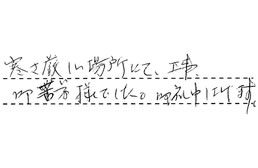 寒さ厳しい場所にて、工事
御苦労様でした。御礼申し上げます